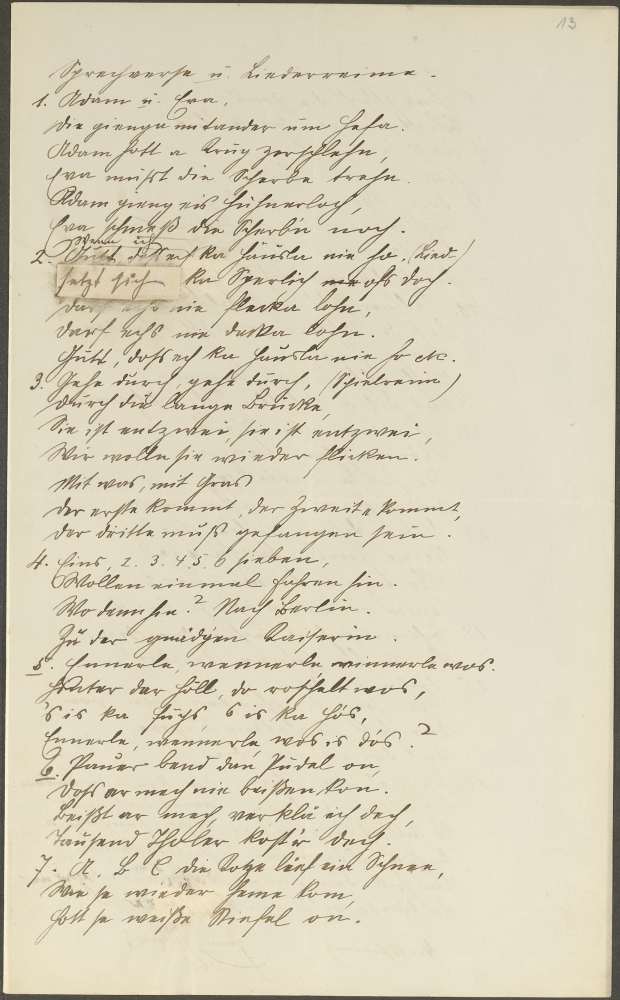 13
Sprechverse u. Liederreime.
1. Adam u. Eva,
die gienga mitander um Hefa.
Adam hott a Krug zerschlehn,
Eva mußt die Scherba trehn.
Adam gieng eis Hühnerloch,
Eva schmeß die Scherb'n noch.
Wenn ich
2. Gutt doß ech ka Häusla nie ho. (Lied)
setzt sich ka Sperlich nie ofs Doch.
Darf ich nie flecka lohn,
Darf echs nie decka lohn.
Gutt, doß ech ka Häusla nie ho etc.
3. Gehe durch, gehe durch, (Spielreim)
Durch die lange Brücke,
Sie ist entzwei, sie ist entzwei,
Wir wolln sie wieder flicken.
Mit was, mit Gras
Der erste kommt, der zweite kommt,
der dritte muß gefangen sein.
4. Eins, 2. 3. 4. 5. 6 sieben,
Wollen einmal fahren hin.
Wo denn hin? Nach Berlin.
Zu der gnädgen Kaiserin.
5. Ennerle, wennerle winnerle wos.
Hinter der Höll, do roschelt wos,
's is ka Fuchs, 's is ka Hos,
Ennerle, wennerle, wos is dos?
6. Pauer bend dan Pudel on,
Doß ar mech nie beißen kon.
Beißt ar mech, verkla ich dech,
Tausend Tholer kost's dech.
7. A. B. C die Kotze lief ein Schnee,
Wie se wieder heme kom,
Hott se weiße Stiefel on.